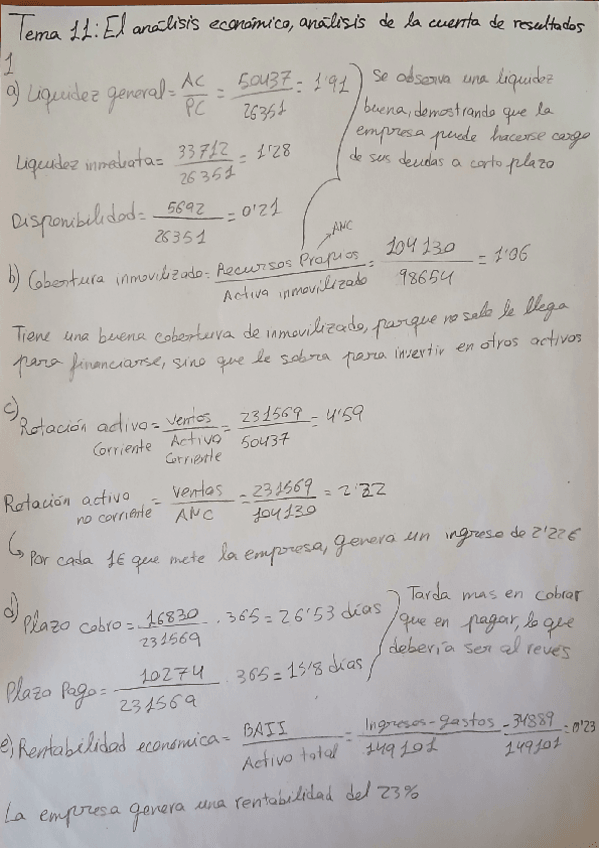 Tema 11: El análisis económico, análisis de la cuenta de resultados
1
a) Liquidez general = AC / PC = 50437 / 26351 = 1'91
Se observa una liquidez
buena, demostrando que la
empresa puede hacerse cargo
de sus deudas a corto plazo
Liquidez inmediata = 33712 / 26351 = 1'28
Disponibilidad = 5692 / 26351 = 0'21
b) Cobertura inmovilizado = Recursos Propios / Activo inmovilizado = 104130 / 98654 = 1'06
ANC
Tiene una buena cobertura de inmovilizado, porque no solo le llega
para financiarse, sino que le sobra para invertir en otros activos
c)
Rotación activo corriente = Ventas / Activo Corriente = 231569 / 50437 = 4'59
Rotación activo no corriente = Ventas / ANC = 231569 / 104130 = 2'22
↳ Por cada 1€ que mete la empresa, genera un ingreso de 2'22€
d) Plazo cobro = 16830 / 231569 . 365 = 26'53 días
Tarda mas en cobrar
que en pagar, lo que
debería ser al revés
Plazo Pago = 10274 / 231569 . 365 = 15'8 días
e) Rentabilidad económica = BAII / Activo total = Ingresos - gastos / 149101 = 34889 / 149101 = 0'23
La empresa genera una rentabilidad del 23%